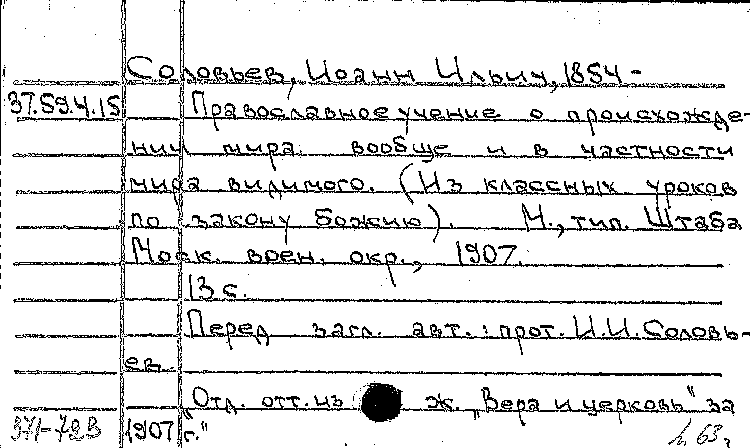 Соловьев, Иоанн Ильич, 1854 -
37.59.4.15 Православное учение о происхожде-
нии мира вообще и в частности
мира видимого. (Из классных уроков
по закону божию). М., тип. Штаба
Моск. воен. окр., 1907.
13 с.
Перед загл. авт.: прот. И.И. Соловь-
ев.
"Отд. отт. из ж. "Вера и церковь" за
371-72В 1907 г."